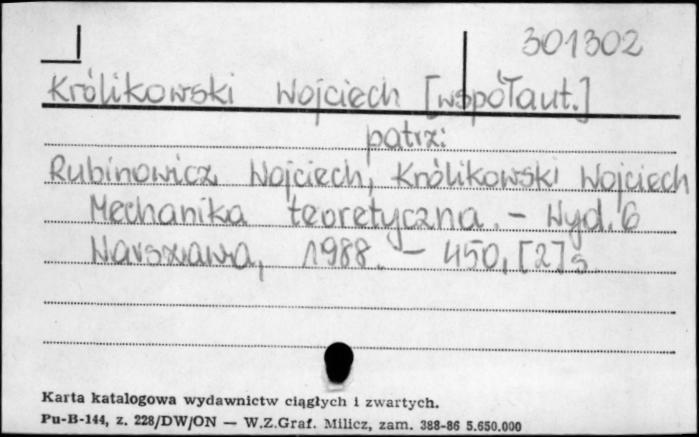 301302
Królikowski Wojciech [współaut.]
patrz:
Rubinowicz Wojciech, Królikowski Wojciech
Mechanika teoretyczna. - Wyd. 6
Warszawa, 1988. - 450, [2] s.
Karta katalogowa wydawnictw ciągłych i zwartych.
Pu-B-144, z. 228/DW/ON — W.Z.Graf. Milicz, zam. 388-86 5.650.000